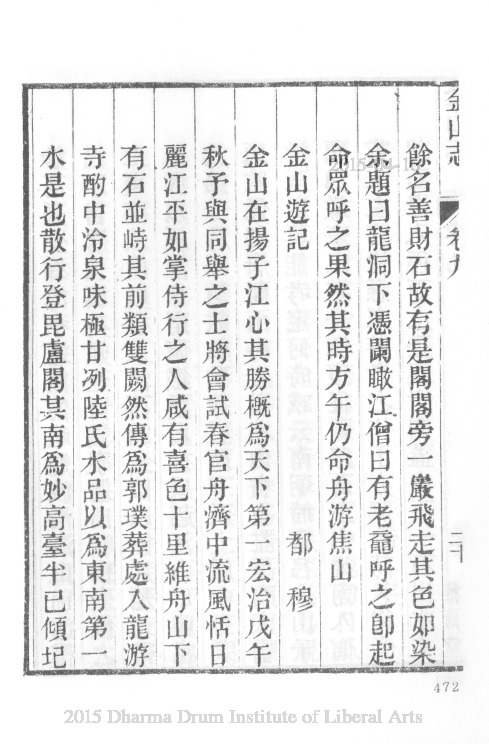 金山志
卷九
二十
餘名善財石故有是閣閣旁一巖飛走其色如染
余題曰龍洞下憑闌瞰江僧曰有老黿呼之卽起
命眾呼之果然其時方午仍命舟游焦山
金山遊記 都穆
金山在揚子江心其勝槪爲天下第一宏治戊午
秋予與同舉之士將會試春官舟濟中流風恬日
麗江平如掌侍行之人咸有喜色十里維舟山下
有石並峙其前類雙闕然傳爲郭璞葬處入龍游
寺酌中泠泉味極甘冽陸氏水品以爲東南第一
水是也散行登毘盧閣其南爲妙高臺半已傾圮
472
2015 Dharma Drum Institute of Liberal Arts